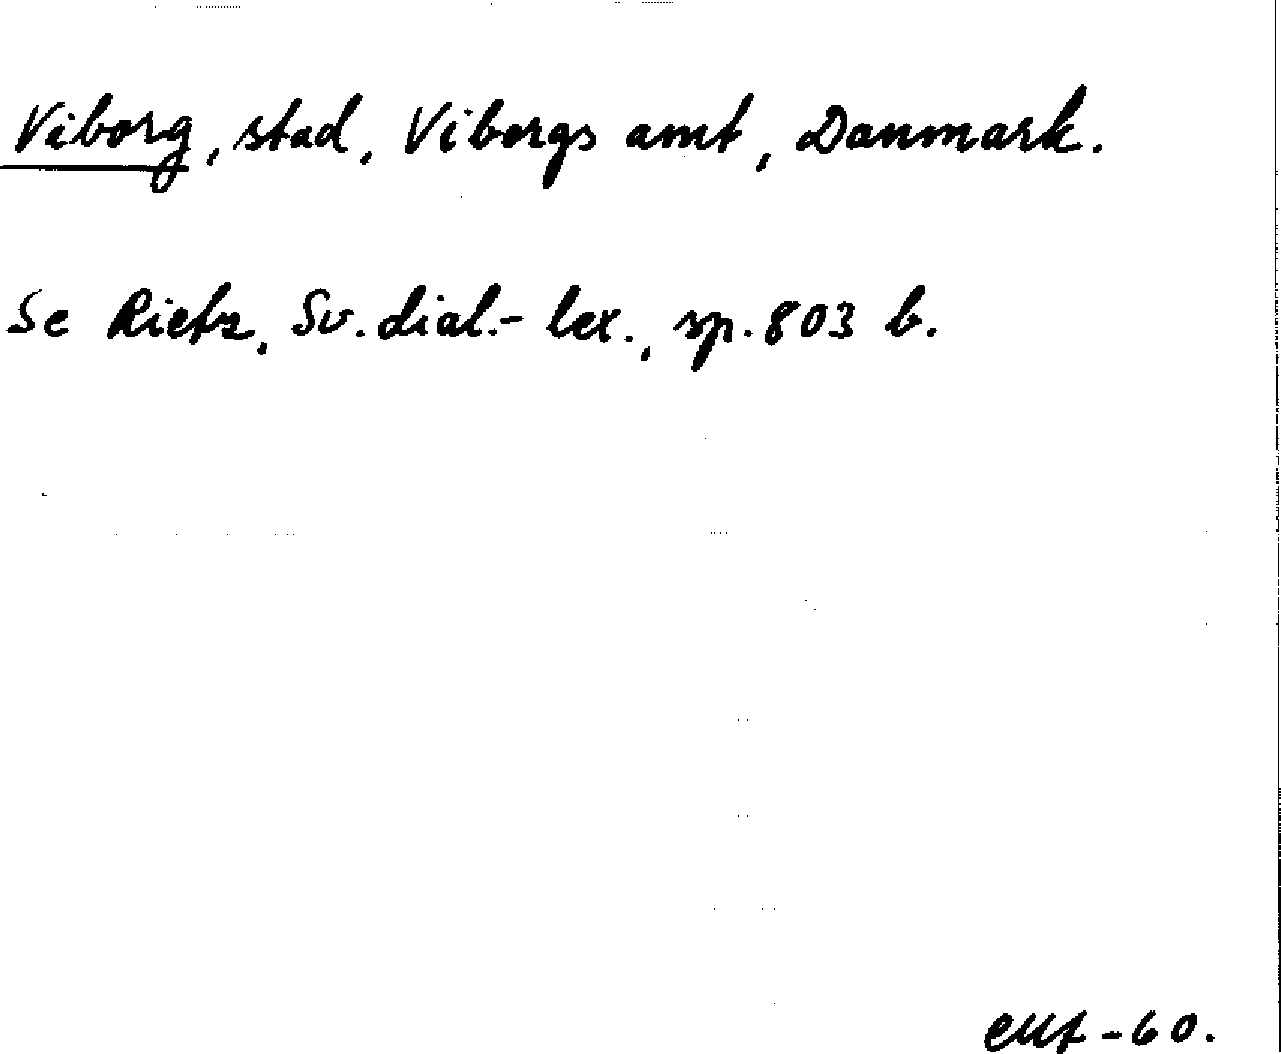 Viborg, stad, Viborgs amt, Danmark.
Se Rietz, Sv. dial.- lex., sp. 803 b.
-60.